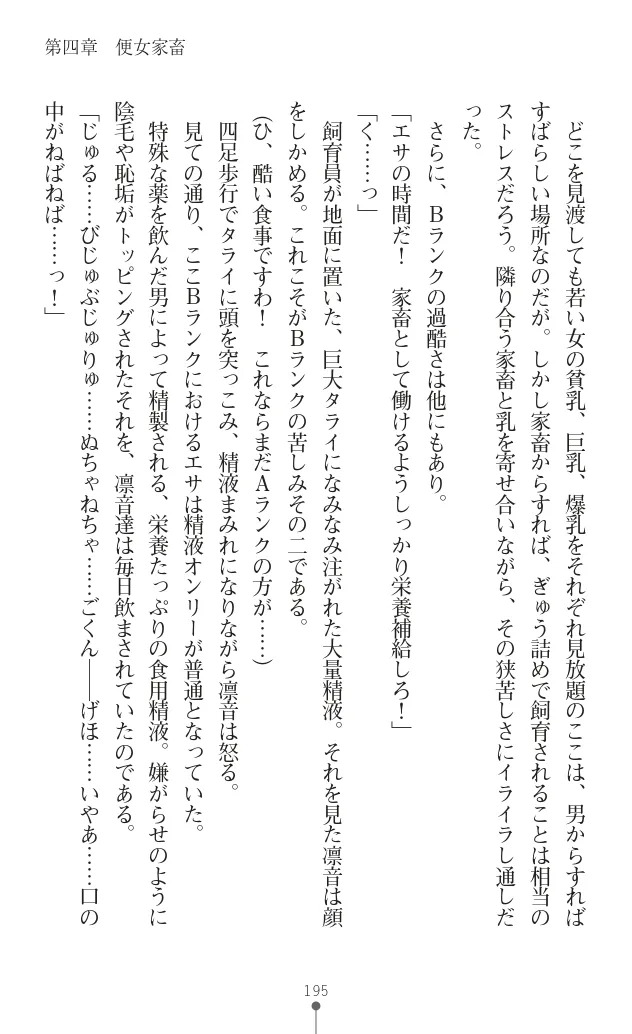 第四章　便女家畜
どこを見渡しても若い女の貧乳、巨乳、爆乳をそれぞれ見放題のここは、男からすれば
すばらしい場所なのだが。しかし家畜からすれば、ぎゅう詰めで飼育されることは相当の
ストレスだろう。隣り合う家畜と乳を寄せ合いながら、その狭苦しさにイライラし通しだ
った。
さらに、Ｂランクの過酷さは他にもあり。
「エサの時間だ！　家畜として働けるようしっかり栄養補給しろ！」
「く……っ」
飼育員が地面に置いた、巨大タライになみなみ注がれた大量精液。それを見た凛音は顔
をしかめる。これこそがＢランクの苦しみその二である。
（ひ、酷い食事ですわ！　これならまだＡランクの方が……）
四足歩行でタライに頭を突っこみ、精液まみれになりながら凛音は怒る。
見ての通り、ここＢランクにおけるエサは精液オンリーが普通となっていた。
特殊な薬を飲んだ男によって精製される、栄養たっぷりの食用精液。嫌がらせのように
陰毛や恥垢がトッピングされたそれを、凛音達は毎日飲まされていたのである。
「じゅる……びじゅぶじゅりゅ……ぬちゃねちゃ……ごくん――げほ……いやぁ……口の
中がねばねば……っ！」
195